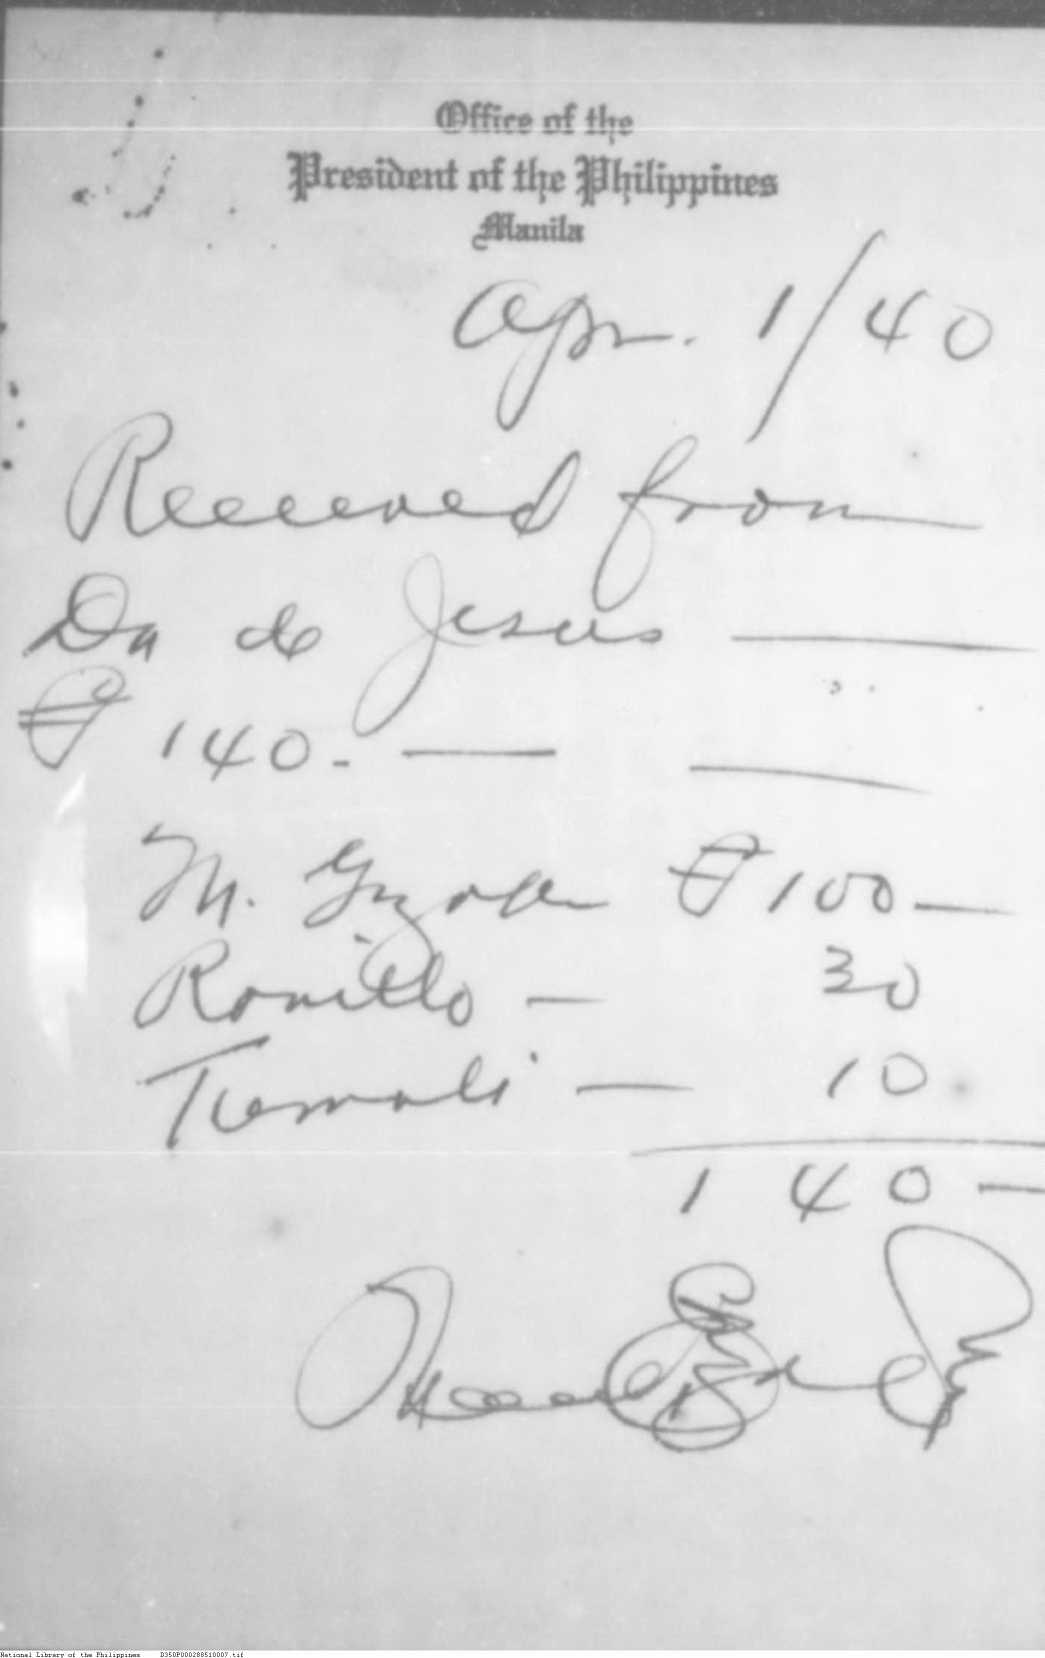 Office of the
President of the Philippines
Manila
Apr. 1/40
Received from
Da de Jesus
₱ 140. —
M. ₱ 100 —
Ronillo — 30
— 10
140 —
National Library of the Philippines D350P000288510007.tif